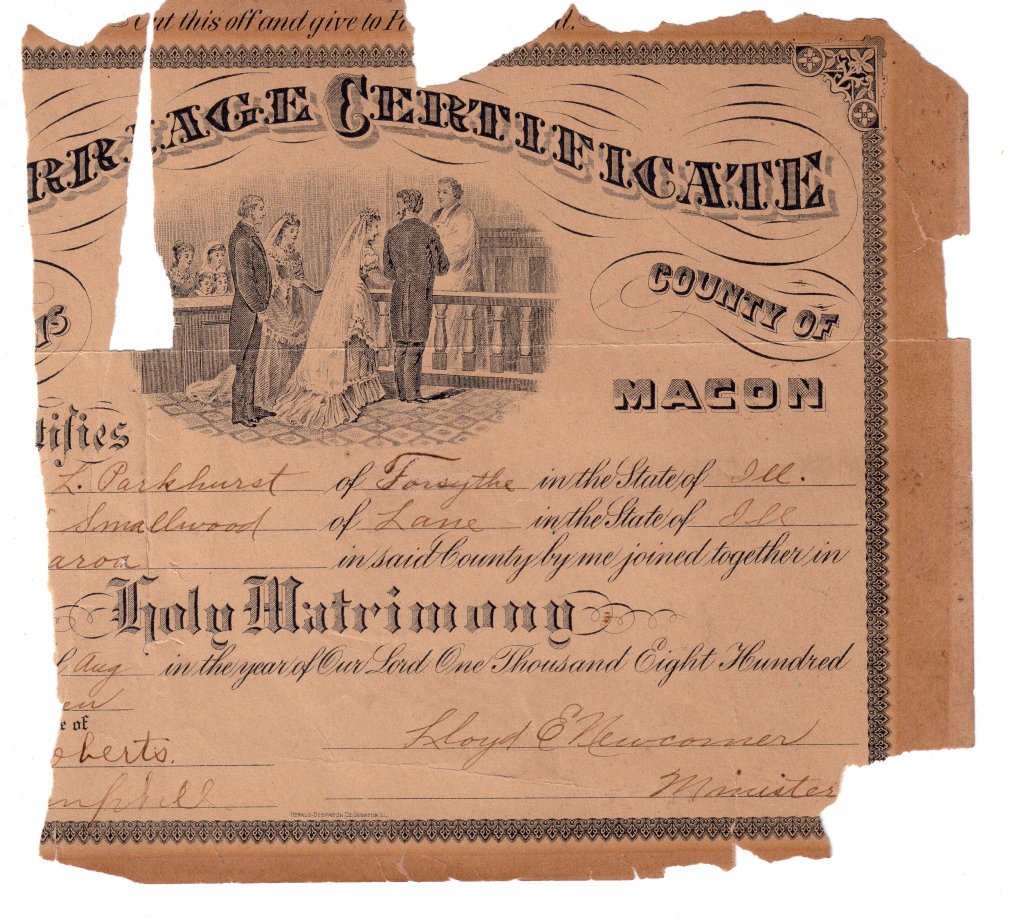 Cut this off and give to
RRIAGE CERTIFICATE
COUNTY OF
MACON
tifies
L. Parkhurst of Forsythe in the State of Ill.
Smallwood of Lane in the State of Ill
aroa in said County by me joined together in
Holy Matrimony
Aug in the year of Our Lord One Thousand Eight Hundred
en
e of
Lloyd E Newcomer
oberts.
Minister